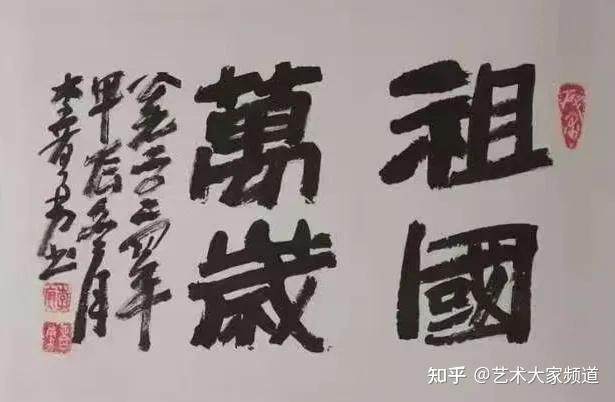 祖國
萬歲
公元二〇二四年
甲辰冬月
李晋
书
知乎 @艺术大家频道